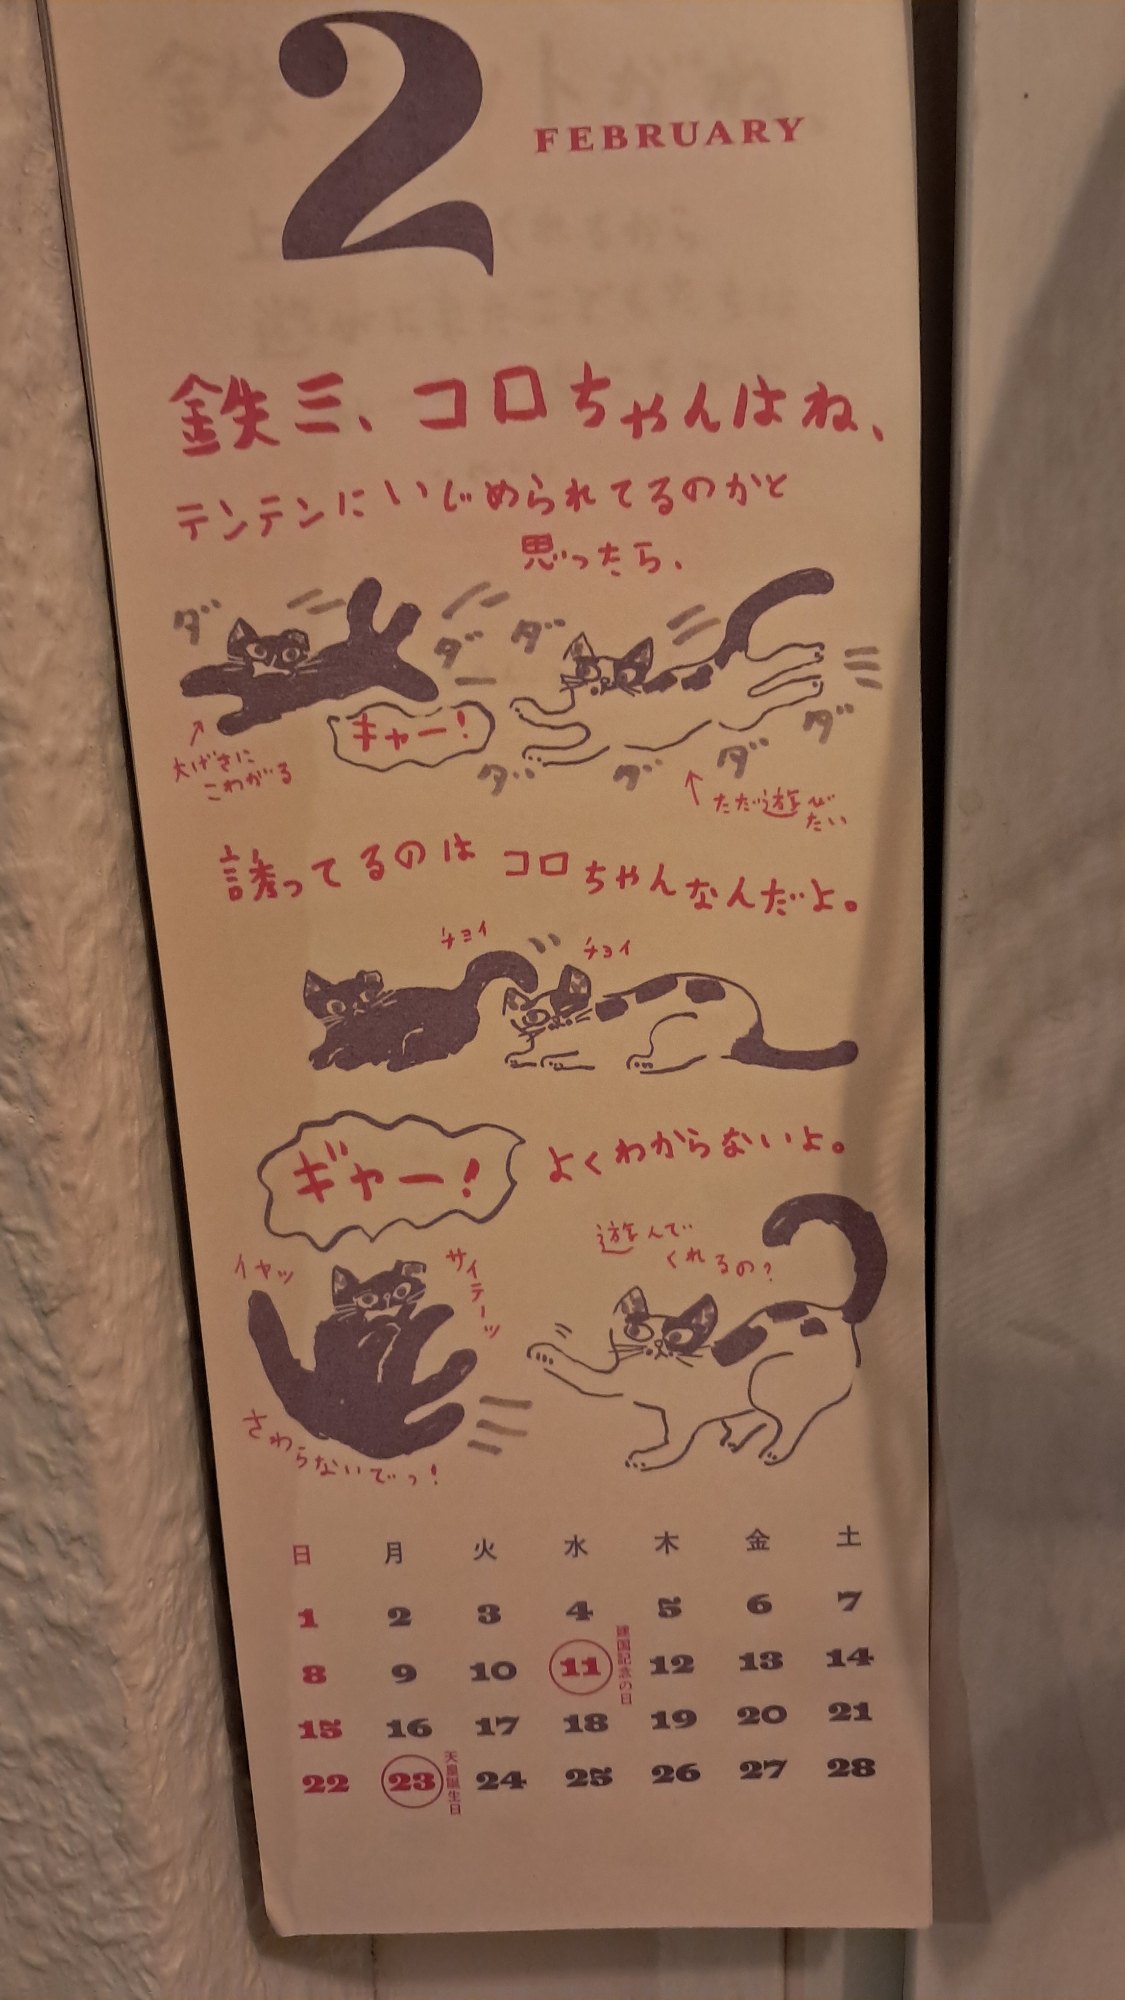 2
FEBRUARY
鉄三、コロちゃんはね、
テンテンにいじめられてるのかと
思ったら、
ダ ダ ダ
キャー!
ダ ダ ダ ダ
↑
大げさに
こわがる
↑
ただ遊び
たい
誘ってるのは コロちゃんなんだよ。
チョイ チョイ
ギャー! よくわからないよ。
イヤッ
サイテーッ
さわらないでっ!
遊んで
くれるの?
日 月 火 水 木 金 土
1 2 3 4 5 6 7
8 9 10 11 建国記念の日 12 13 14
15 16 17 18 19 20 21
22 23 天皇誕生日 24 25 26 27 28